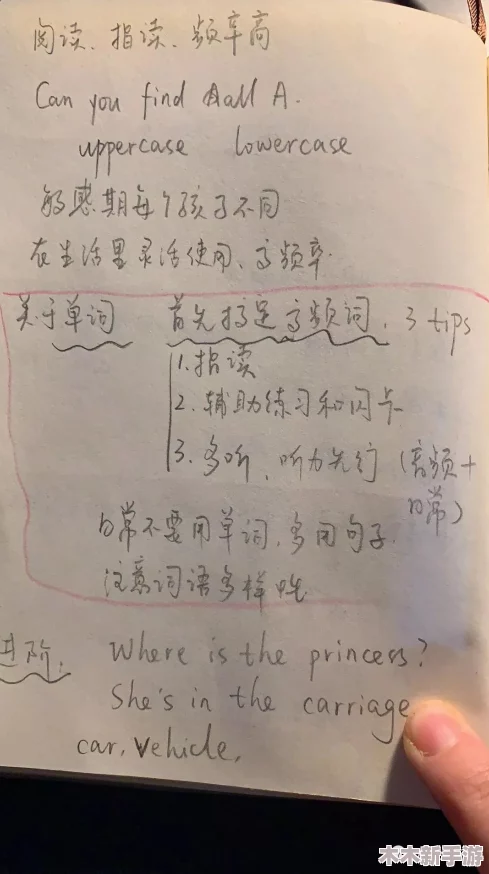 阅读、指读、频率高
Can you find all A.
uppercase lowercase
敏感期每个孩子不同
在生活里灵活使用、高频率.
关于单词 首先搞定高频词, 3 tips
1. 指读
2. 辅助练习和闪卡
3. 多听, 听力先行 (音频+日常)
日常不要用单词, 多用句子.
注意词语多样性
进阶. Where is the princess?
She's in the carriage
car, vehicle,
木木新手游